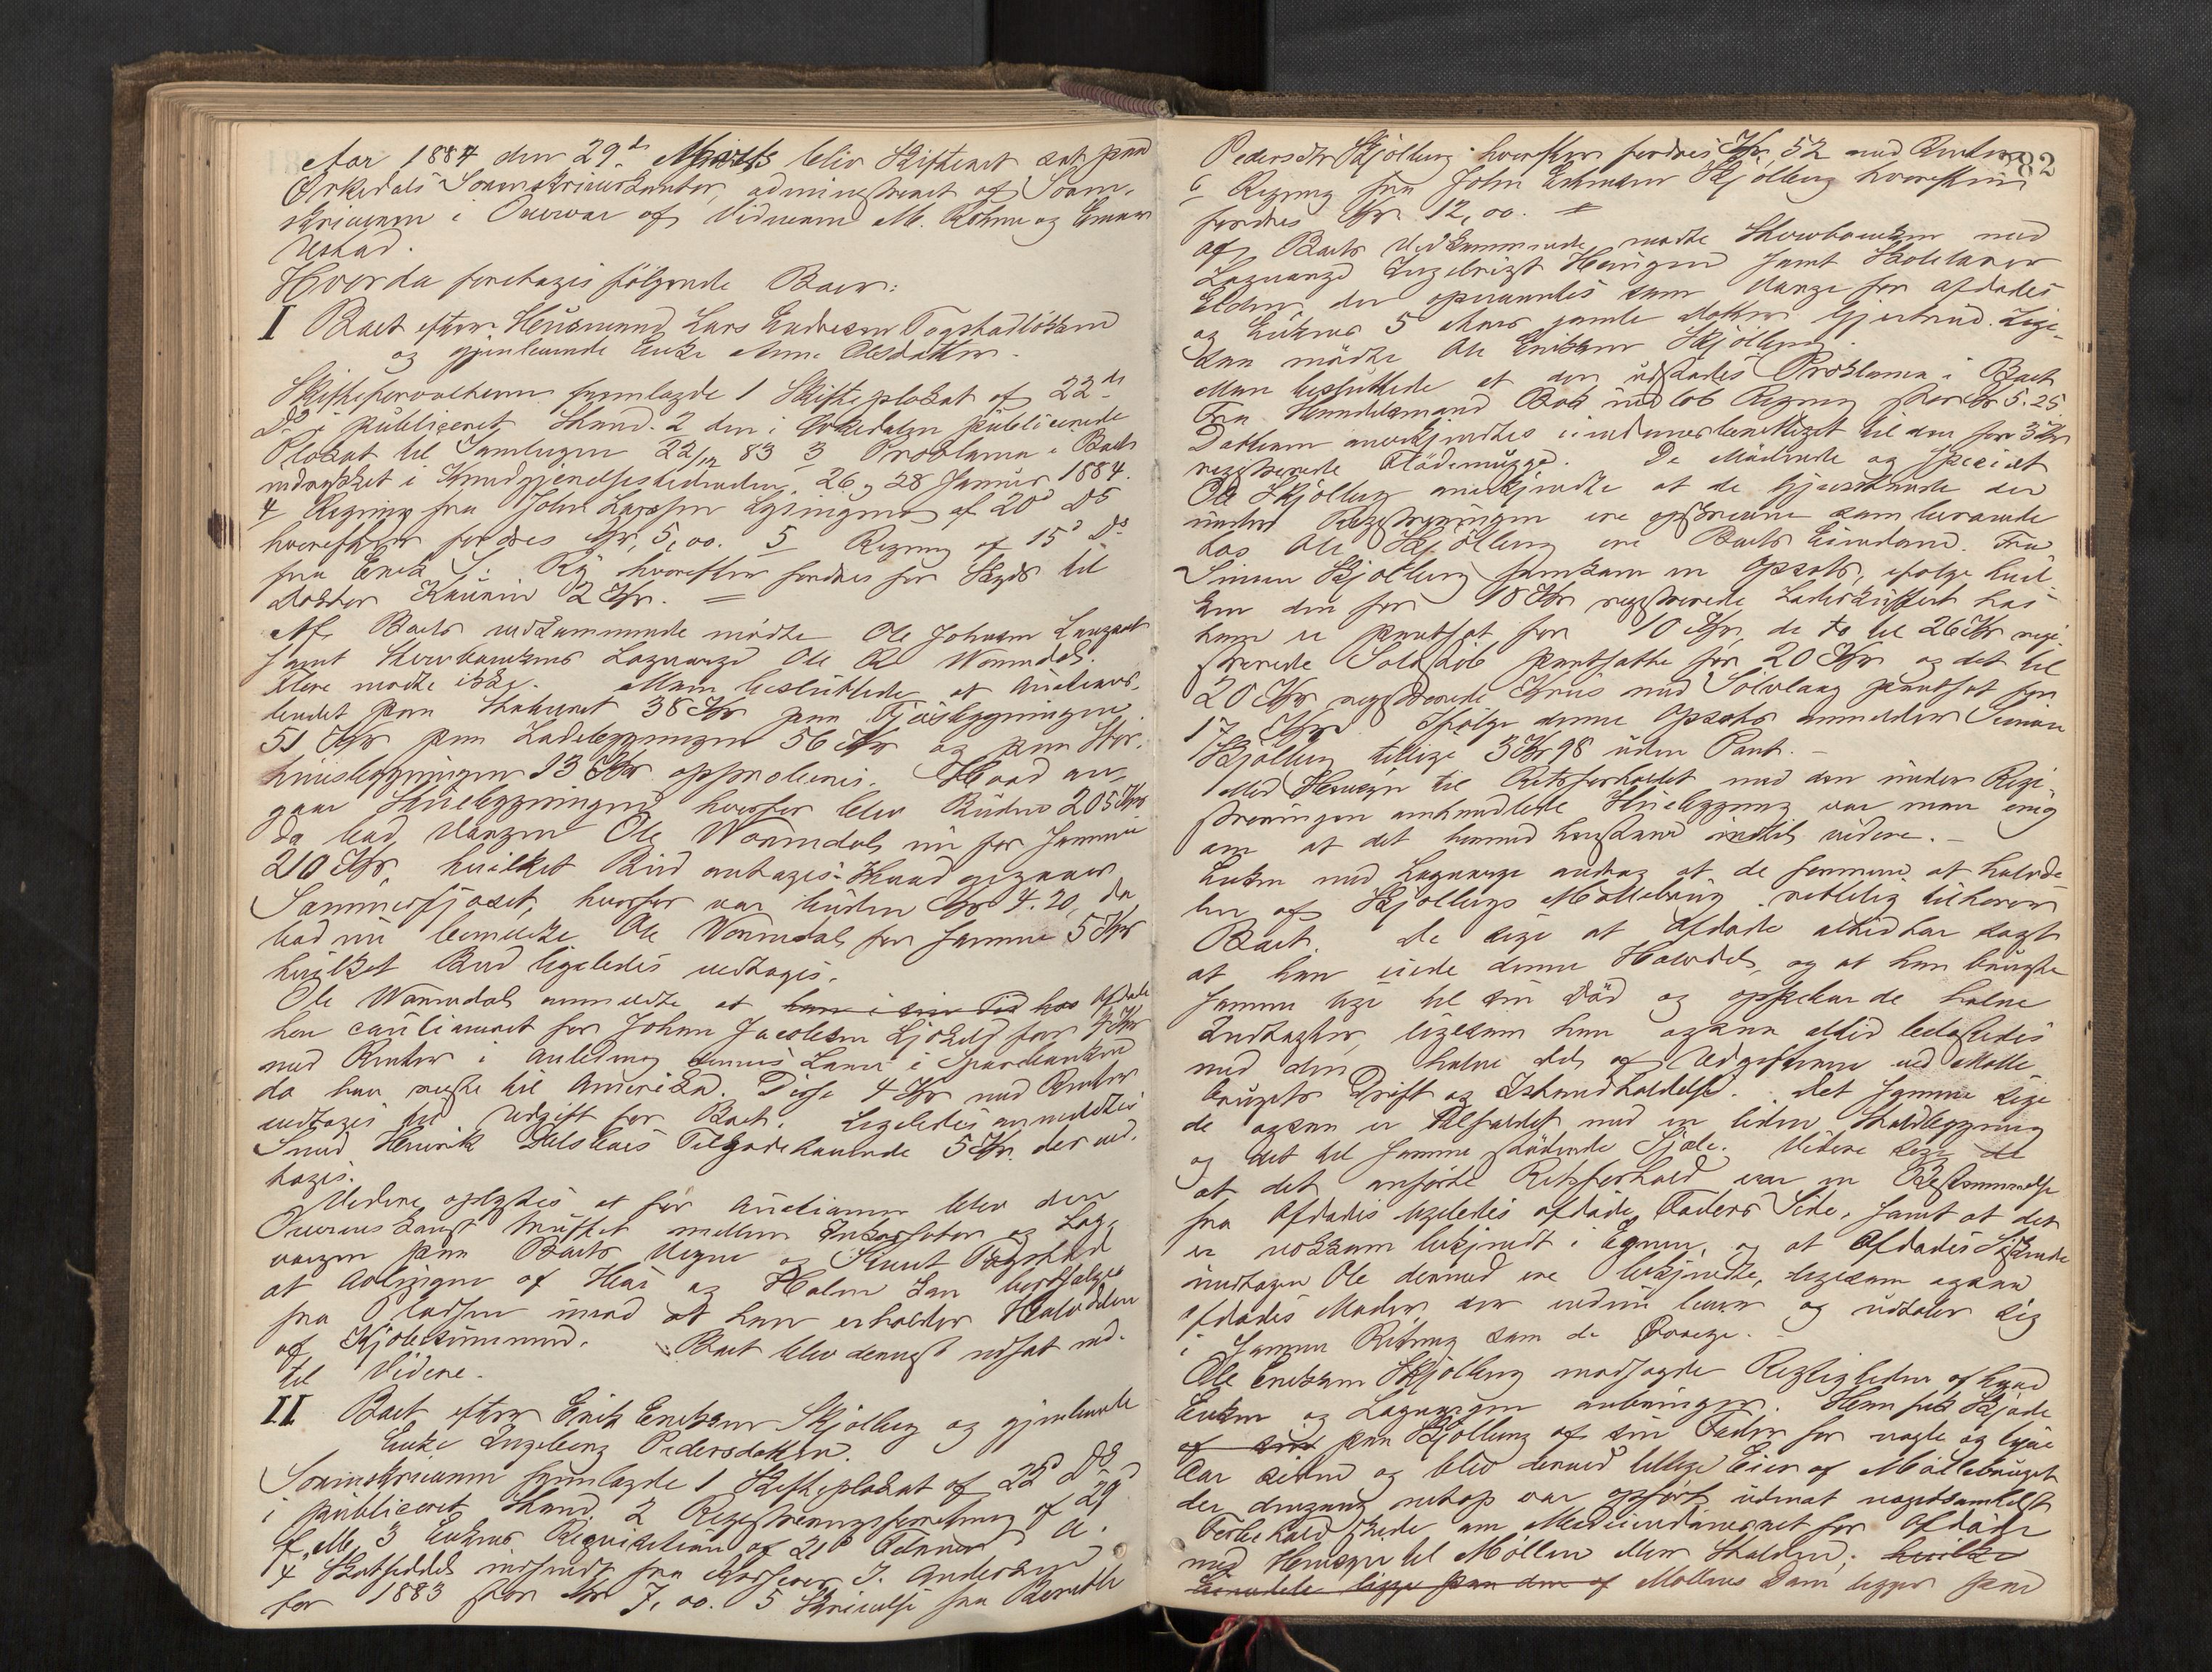 Aar 1884 den 29de Marts blev Skifteret sat paa
Orkedals Sorenskriverkontor, administreret af Soren-
skriveren i Overvær af Vidnerne M. Röhme og Einar
Ustad.
Hvorda foretoges følgende Boer:
I Boet efter Husmand Lars Endresen Togstadløkken
og gjenlevende Enke Anne Olsdatter.
Skifteforvalteren fremlagde 1 Skifteplakat af 22de
Ds i publiceret Stand. 2 den i Orkedalen publicerede
Plakat til Samlingen 22/12 83 3 Proklama i Boet
indrykket i Kundgjørelsestidenden 26 og 28 Januar 1884.
4 Regning fra John Larssen af 20de Ds
hvorefter fordres Kr. 5,00. 5 Regning af 15de Ds
fra Erik J. Ry hvorefter fordres for Skyds til
Doktor 2 Kr. =
Af Boets vedkommende mødte Ole Johnsen
samt Skovbankens Laugværge Ole Wormdal.
Flere mødte ikke. Man besluttede at Auktions-
budet paa Stabburet 38 Kr paa Fjøsbygningen
51 Kr paa Ladebygningen 56 Kr og paa
husbygningen 13 Kr approberes. Hvad an-
gaar Stuebygningen hvorfor blev Buden 205 Kr
da bød Værgen Ole Wormdal nu for samme
210 Kr, hvilket Bud antages. Hvad angaar
Sommerfjøset, hvorfor var buden Kr 4.20, da
bød nu bemeldte Ole Wormdal for samme 5 Kr
hvilket Bud ligeledes vedtages.
Ole Wormdal anmeldte at han i sin Tid hos Afdøde
har cautioneret for Johan Jacobsen for 4 Kr
med Renter i Anledning dennes Laan i Sparebanken
da han reiste til Amerika. Disse 4 Kr med Renter
vedtages til Udgift for Boet. Ligeledes anmeldtes
Smed Henrik Tilgodehavende 5 Kr. der ved-
toges.
Videre oplystes at før Auctionen blev den
Overenskomst truffet mellem Inkassator og Lag-
værgen paa Boets Vegne og Knut Togstad
at Avlingen af Høi og Halm kan bortsælges
fra Pladsen imod at han erholder Halvdelen
af Kjøbesummen. Boet blev dernæst udsat ind-
til Videre.
II Boet efter Erik Eriksen Skjølberg og gjenlevende
Enke Ingeborg Pedersdatter.
Sorenskriveren fremlagde 1 Skifteplakat af 22de Ds
i publiceret Stand. 2 Registreringsforretning af 29
f. M. 3 Enkens Requisition af 21de Februar d. A.
4 Skatseddel indsendt fra Kasserer J. Andersen
for 1883 stor Kr 7,00. 5 Skrivelse fra Berethe
82
Pedersdtr Skjølberg hvorefter fordres Kr. 52 med Renter
6 Regning fra John Estensen Skjølberg hvorefter
fordres Kr 12,00. =
Af Boets Vedkommende mødte Skovbanken med
Laugværge Ingebrigt Hoingen samt Skolelærer
Elden der opnævntes som Værge for Afdødes
og Enkens 5 Aars gamle Datter Gjertrud. Lige-
saa mødte Ole Eriksen Skjølberg.
Man besluttede at der udstædes Proklama i Boet
Fra Handelsmand Bok indløb Regning stor Kr 5.25.
Datteren anerkjendtes eiendomsberettiget til den for 3 Kr
registrerede Flødemugge. De Mødende og specielt
Ole Skjølberg anerkjendte at de Gjenstande der
under Registreringen ere opskrevne som beroende
hos Ole Skjølberg ere Boets Eiendom. Fra
Simon Skjølberg fremkom en Opsats, ifølge hvil-
ken den for 18 Kr registrerede Laderkuffert hos
ham er pantsat for 10 Kr, de to til 26 Kr regi-
strerede pantsatte for 20 Kr og det til
20 Kr registrerede Krus med Sølvlaag pantsat for
17 Kr Ifølge denne Opsats anmelder Simon
Skjølberg tillige 3 Kr 98 uden Pant. –
Med Hensyn til Retsforholdet med den under Regi-
streringen omhandlede Stuebygning var man enig
om at det hermed henstaar indtil videre. –
Enken med Laugværge androg at de formene at halvde-
len af Skjølbergs Møllebrug rettelig tilhører
Boet. De sige at Afdøde altid har sagt
at han eiede denne Halvdel, og at han brugte
samme lige til sin Død og oppebar de halve
Indtægter, ligesom han ogsaa altid belastedes
med den halve Del af Udgifterne ved Mølle-
brugets Drift og Istandholdelse. Det samme sige
de ogsaa er Tilfældet med en liden Staldbygning
og det til samme stødende Skjæle. Videre sige de
at det anførte Retsforhold var en Bestemmelse
fra Afdødes ligeledes afdøde Faders Side, samt at det
er noksom bekjendt i Egnen, og at Afdødes Søskende
undtagen Ole dermed ere bekjendte, ligesom ogsaa
Afdødes Moder, der endnu lever og udtaler sig
i samme Retning som de øvrige. –
Ole Eriksen Skjølberg modsagde Rigtigheden af hvad
Enken og Laugværgen anbringer. Han fik Skjøde
af sin paa Skjølberg af sin Fader for nogle og tyve
Aar siden og blev dermed tillige Eier af Møllebruget
der dengang netop var opført, uden at nogetsomhelst
Forbehold skede om Medeiendomsret for Afdøde
med Hensyn til Møllen eller Stalden; hvilke
Eiendele ligge paa den af Møllens Dam ligger paa